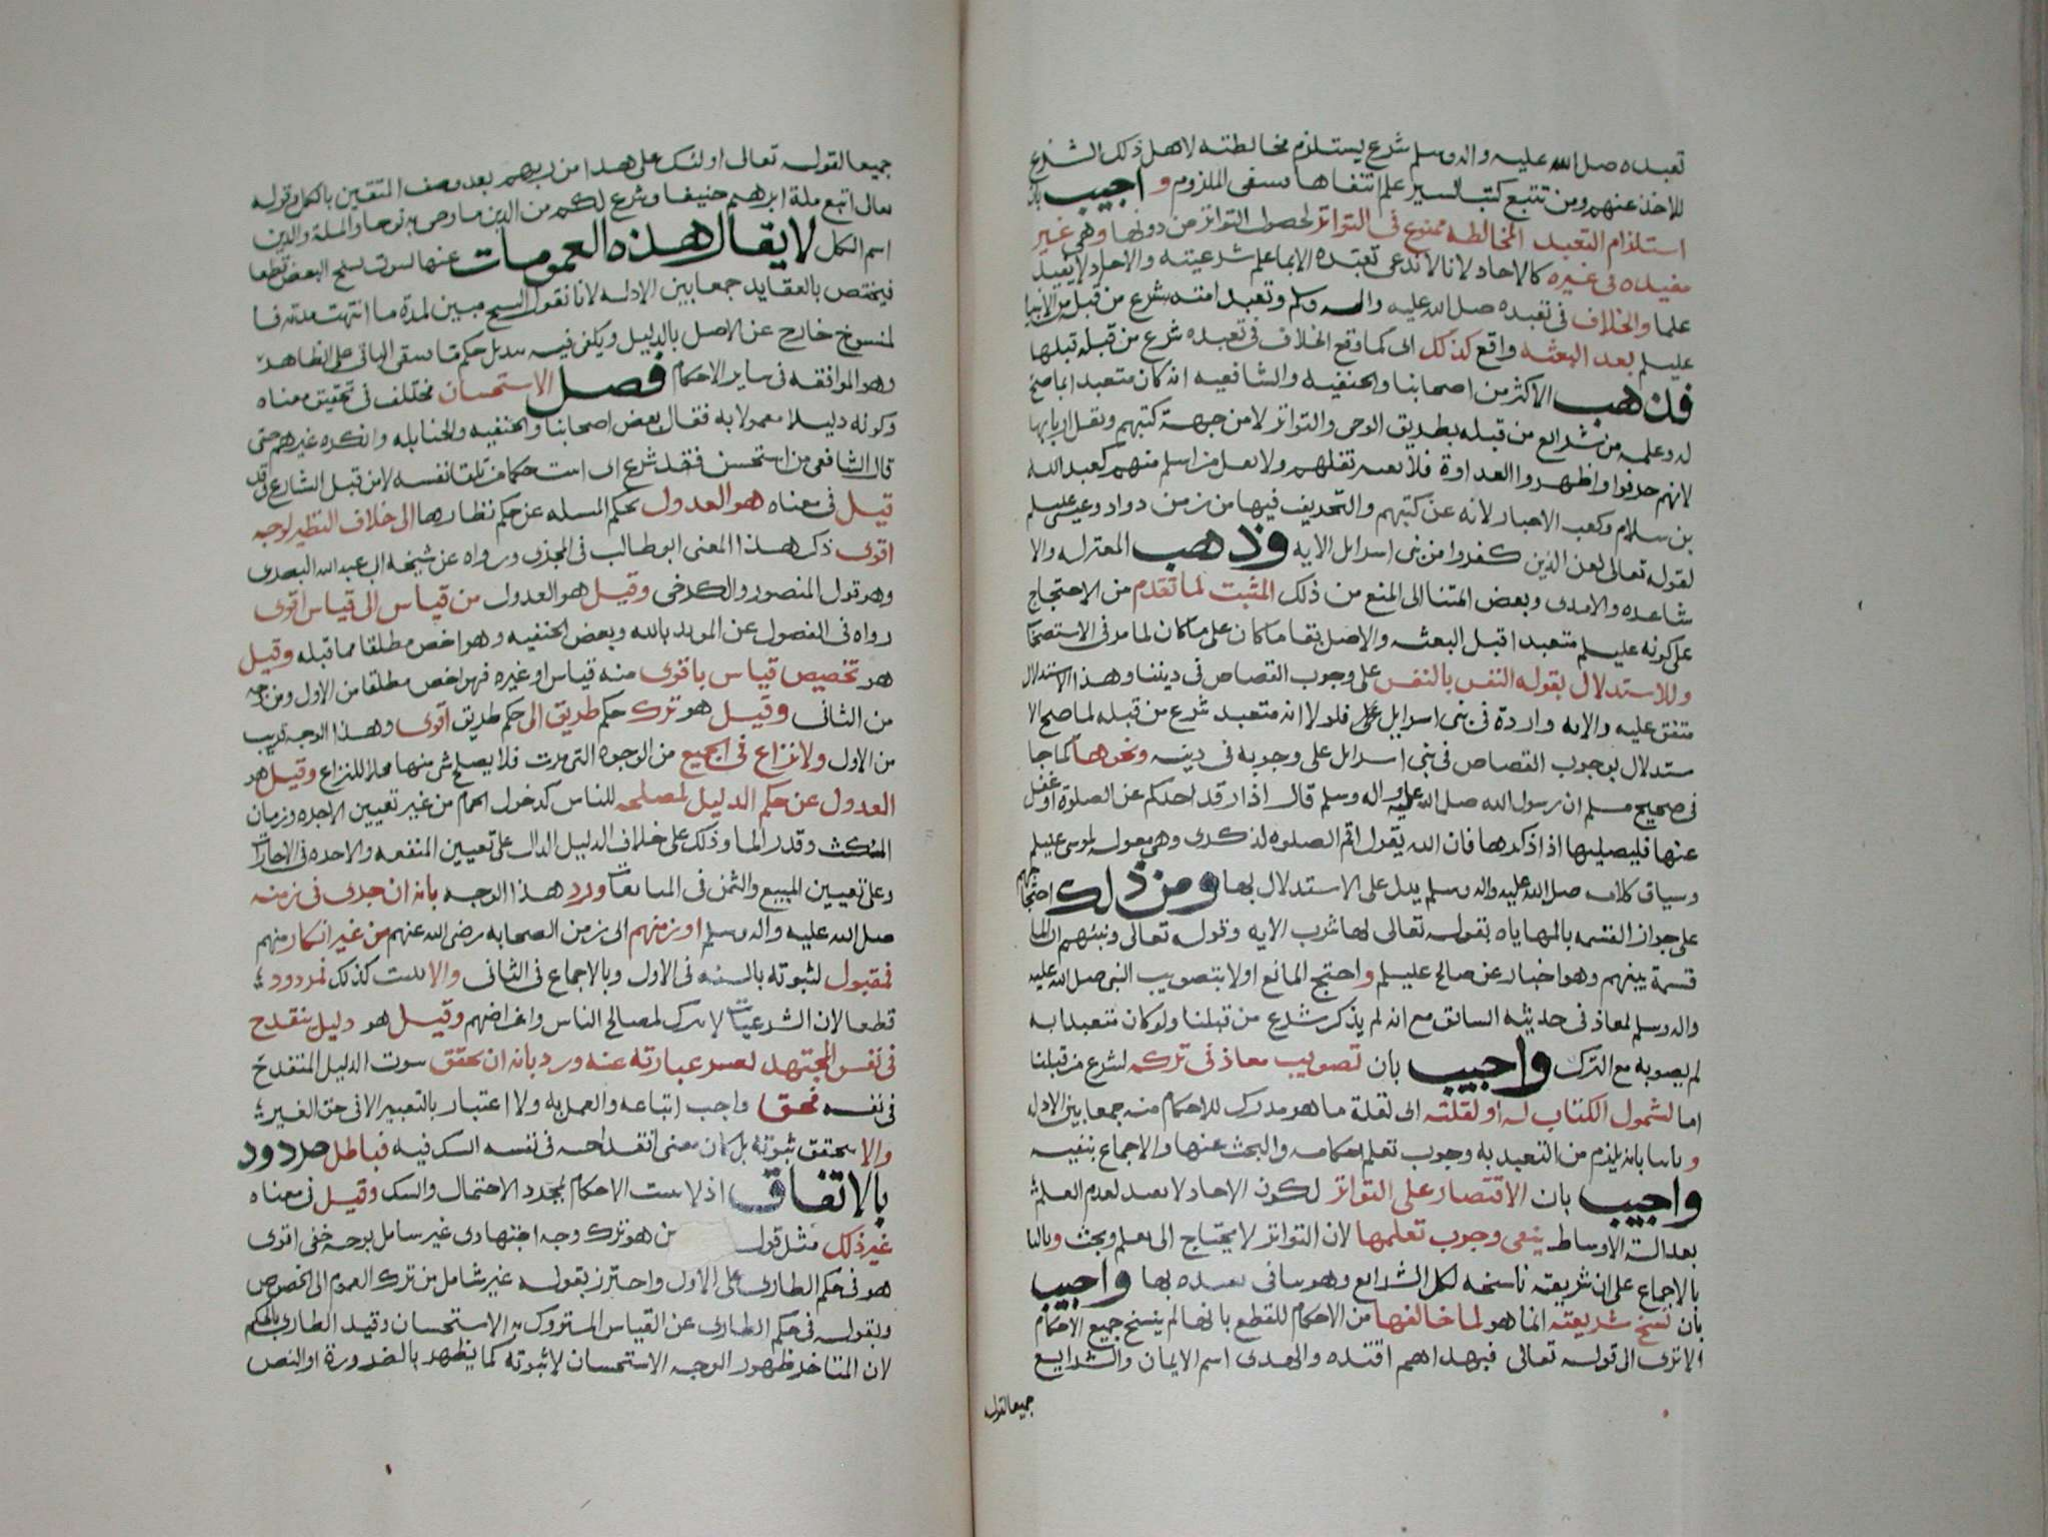 تعبده صلى الله عليه واله وسلم بشرع يستلزم مخالطته لاهل ذلك الشرع
للاخذ عنهم ومن تتبع كتب السير علم انتفاها فينتفى الملزوم واجيب بان
استلزام التعبد المخالطه ممنوع فى التواتر لحصول التواتر من دونها وهى غير
مفيده فى غيره كالاحاد لانا لا ندعى تعبده الا بما علم شرعيته والاحاد لا يفيد
علما والخلاف فى تعبده صلى الله عليه واله وسلم وتعبد امته بشرع من قبله من الانبيا
عليلم بعد البعثه واقع كذلك اى كما وقع الخلاف فى تعبده بشرع من قبله قبلها
فذهب الاكثر من اصحابنا والحنفيه والشافعيه انه كان متعبدا بما صح
له وعلمه من شرايع من قبله بطريق الوحى والتواتر لا من جهة كتبهم ونقل اربابها
لانهم حرفوا واظهروا العداوة فلا يعتد بنقلهم ولا بنقل من اسلم منهم كعبد الله
بن سلام وكعب الاحبار لانه عن كتبهم والتحريف فيها من زمن دواد وعيسى عليلم
لقوله تعالى لعن الذين كفروا من بنى اسرايل الايه وذهب المعتزله والا
شاعره والامدى وبعض ائمتنا الى المنع من ذلك المثبت لما تقدم من الاحتجاج
على كونه عليلم متعبدا قبل البعثه والاصل بقا ما كان على ما كان لما مر فى الاستصحاب
وللاستدلال بقوله النفس بالنفس على وجوب القصاص فى ديننا وهذا الاستدلال
متفق عليه والايه واردة فى بنى اسرايل فلولا انه متعبد بشرع من قبله لما صح الا
ستدلال بوجوب القصاص فى بنى اسرايل على وجوبه فى دينه ونحوها كما جا
فى صحيح مسلم ان رسول الله صلى الله عليه واله وسلم قال اذا رقد احدكم عن الصلوة او غفل
عنها فليصليها اذا ذكرها فان الله يقول اقم الصلوه لذكرى وهى مقوله لموسى عليلم
وسياق كلامه صلى الله عليه واله وسلم يدل على الاستدلال بها ومن ذلك احتجاجهم
على جواز القسمه بالمهاياه بقوله تعالى لها شرب الايه وقوله تعالى ونبئهم ان الما
قسمة بينهم وهو اخبار عن صالح عليلم واحتج المانع اولا بتصويب النبى صلى الله عليه
واله وسلم لمعاذ فى حديثه السابق مع انه لم يذكر شرع من قبلنا ولو كان متعبدا به
لم يصوبه مع الترك واجيب بان تصويب معاذ فى تركه لشرع من قبلنا
اما لشمول الكتاب له او لقلته اى لقلة ما هو مدرك للاحكام منه جمعا بين الادله
وثانيا بانه يلزم من التعبد به وجوب تعلم احكامه والبحث عنها والاجماع بنفيه
واجيب بان الاقتصار على التواتر لكون الاحاد لا يفيد لعدم العلم
بعدالة الاوساط ينفى وجوب تعلمها لان التواتر لا يحتاج الى تعلم وبحث وثالثا
بالاجماع على ان شريعته ناسخه لكل الشرايع وهو ينافى تعبده بها واجيب
بان نسخ شريعته انما هو لما خالفها من الاحكام للقطع بانها لم ينسخ جميع الاحكام
الا ترى الى قوله تعالى فبهداهم اقتده والهدى اسم الايمان والشرايع
جميعا لقوله
جميعا لقوله تعالى اولئك على هدا من ربهم بعد وصف المتقين بالكل وقوله
تعالى اتبع ملة ابرهيم حنيفا وشرع لكم من الدين ما وصى به نوحا والملة والدين
اسم للكل لا يقال هذه العمومات عنها لثبوت نسخ البعض قطعا
فيختص بالعقايد جمعا بين الادله لانا نقول النسخ مبين لمدة ما انتهت مدته فا
لمنسوخ خارج عن الاصل بالدليل ويكفى فيه تبديل حكم ما فبقى الباقى على الظاهر
وهو الموافقه فى ساير الاحكام فصل الاستحسان مختلف فى تحقيق معناه
وكونه دليلا معمولا به فقال بعض اصحابنا والحنفيه والحنابله وانكره غيرهم حتى
قال الشافعى من استحسن فقد شرع اى اثبت حكما من تلقا نفسه لا من قبل الشارع وقد
قيل فى معناه هو العدول بحكم المسله عن حكم نظايرها الى خلاف النظير لوجه
اقوى ذكر هذا المعنى ابو طالب فى المجزى ورواه عن شيخه ابى عبد الله البصرى
وهو قول المنصور والكرخى وقيل هو العدول من قياس الى قياس اقوى
رواه فى الفصول عن المويد بالله وبعض الحنفيه وهو اخص مطلقا مما قبله وقيل
هو تخصيص قياس باقوى منه قياس او غيره فهو اخص مطلقا من الاول ومن وجه
من الثانى وقيل هو ترك حكم طريق الى حكم طريق اقوى وهذا الوجه قريب
من الاول ولا نزاع فى الجميع من الوجوه التى مرت فلا يصلح شى منها محلا للنزاع وقيل هو
العدول عن حكم الدليل لمصلحه للناس كدخول الحمام من غير تعيين الاجره وزمان
المكث وقدر الما وذلك على خلاف الدليل الدال على تعيين المنفعه والاجره فى الاجارات
وعلى تعيين المبيع والثمن فى المبايعات ورد هذا الوجه بانه ان جرى فى زمنه
صلى الله عليه واله وسلم او زمنهم اى زمن الصحابه رضى الله عنهم من غير انكار منهم
فمقبول لثبوته بالسنه فى الاول وبالاجماع فى الثانى والا يثبت كذلك فمردود
قطعا لان الشرعيات لا تترك لمصالح الناس واغراضهم وقيل هو دليل ينقدح
فى نفس المجتهد تعسر عبارته عنه ورد بانه ان تحقق ثبوت الدليل المنقدح
فى نفسه فحق واجب اتباعه والعمل به ولا اعتبار بالتعبير الا فى حق الغير
والا يتحقق ثبوته بل كان معنى انقداحه فى نفسه الشك فيه فباطل مردود
بالاتفاق اذ لا تثبت الاحكام بمجرد الاحتمال والشك وقيل فى معناه
غير ذلك مثل قول من هو ترك وجه اجتهادى غير شامل لوجه خفى اقوى
هو فى حكم الطارى على الاول واحترز بقوله غير شامل من ترك العموم الى الخصوص
وبقوله فى حكم الطارى عن القياس المتروك به الاستحسان وقيد الطارى بالحكم
لان المتاخر ظهور الوجه الاستحسان لا ثبوته كما يظهر بالضرورة او النص